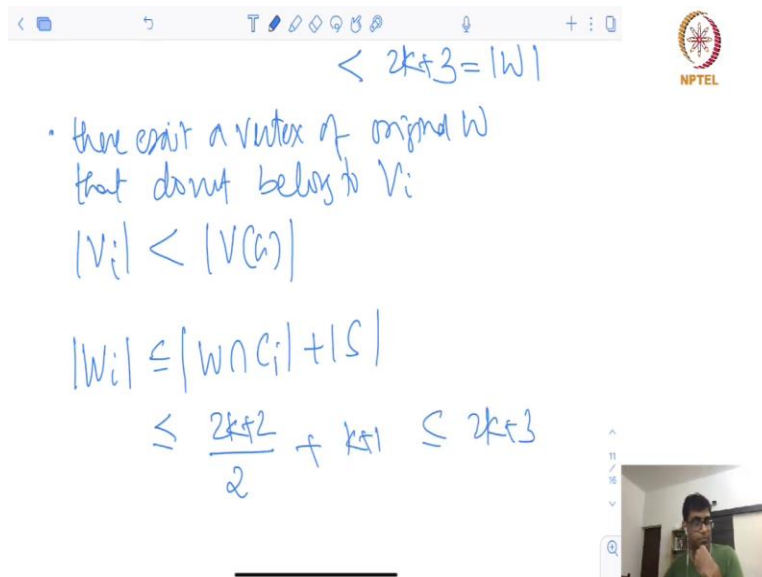 < 2k+3 = |W|
NPTEL
• there exist a vertex of original W
that do not belong to Vi
|Vi| < |V(G)|
|Wi| ≤ |W ∩ Ci| + |S|
≤ (2k+2)/2 + k+1 ≤ 2k+3
11
/
16